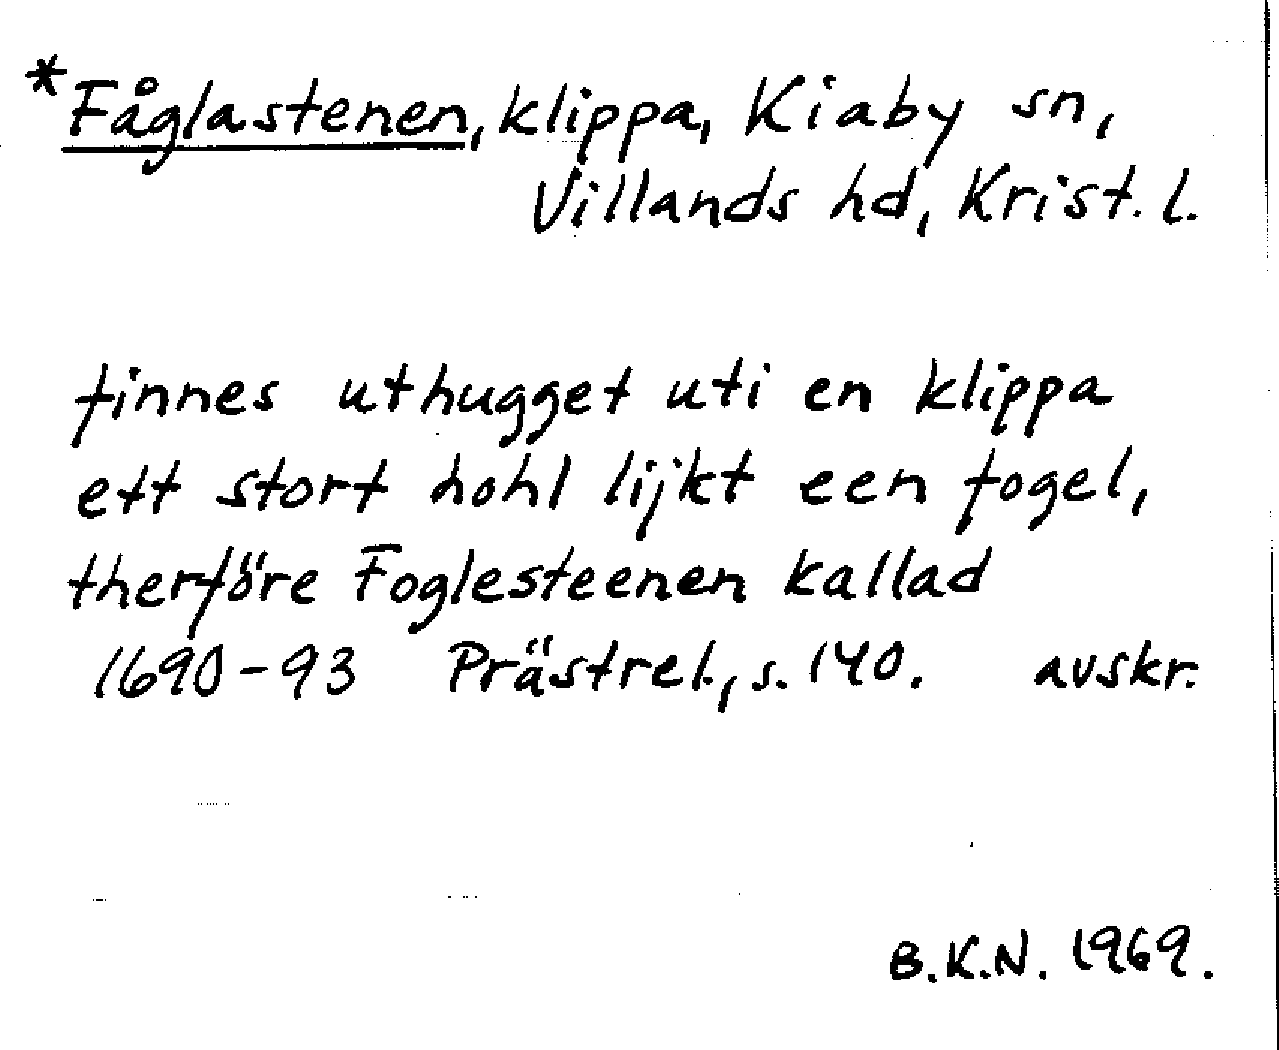 *Fåglastenen, klippa, Kiaby sn,
Villands hd, Krist. l.
finnes uthugget uti en klippa
ett stort hohl lijkt een fogel,
therföre Foglesteenen kallad
1690-93 Prästrel., s. 140. avskr.
B.K.N. 1969.